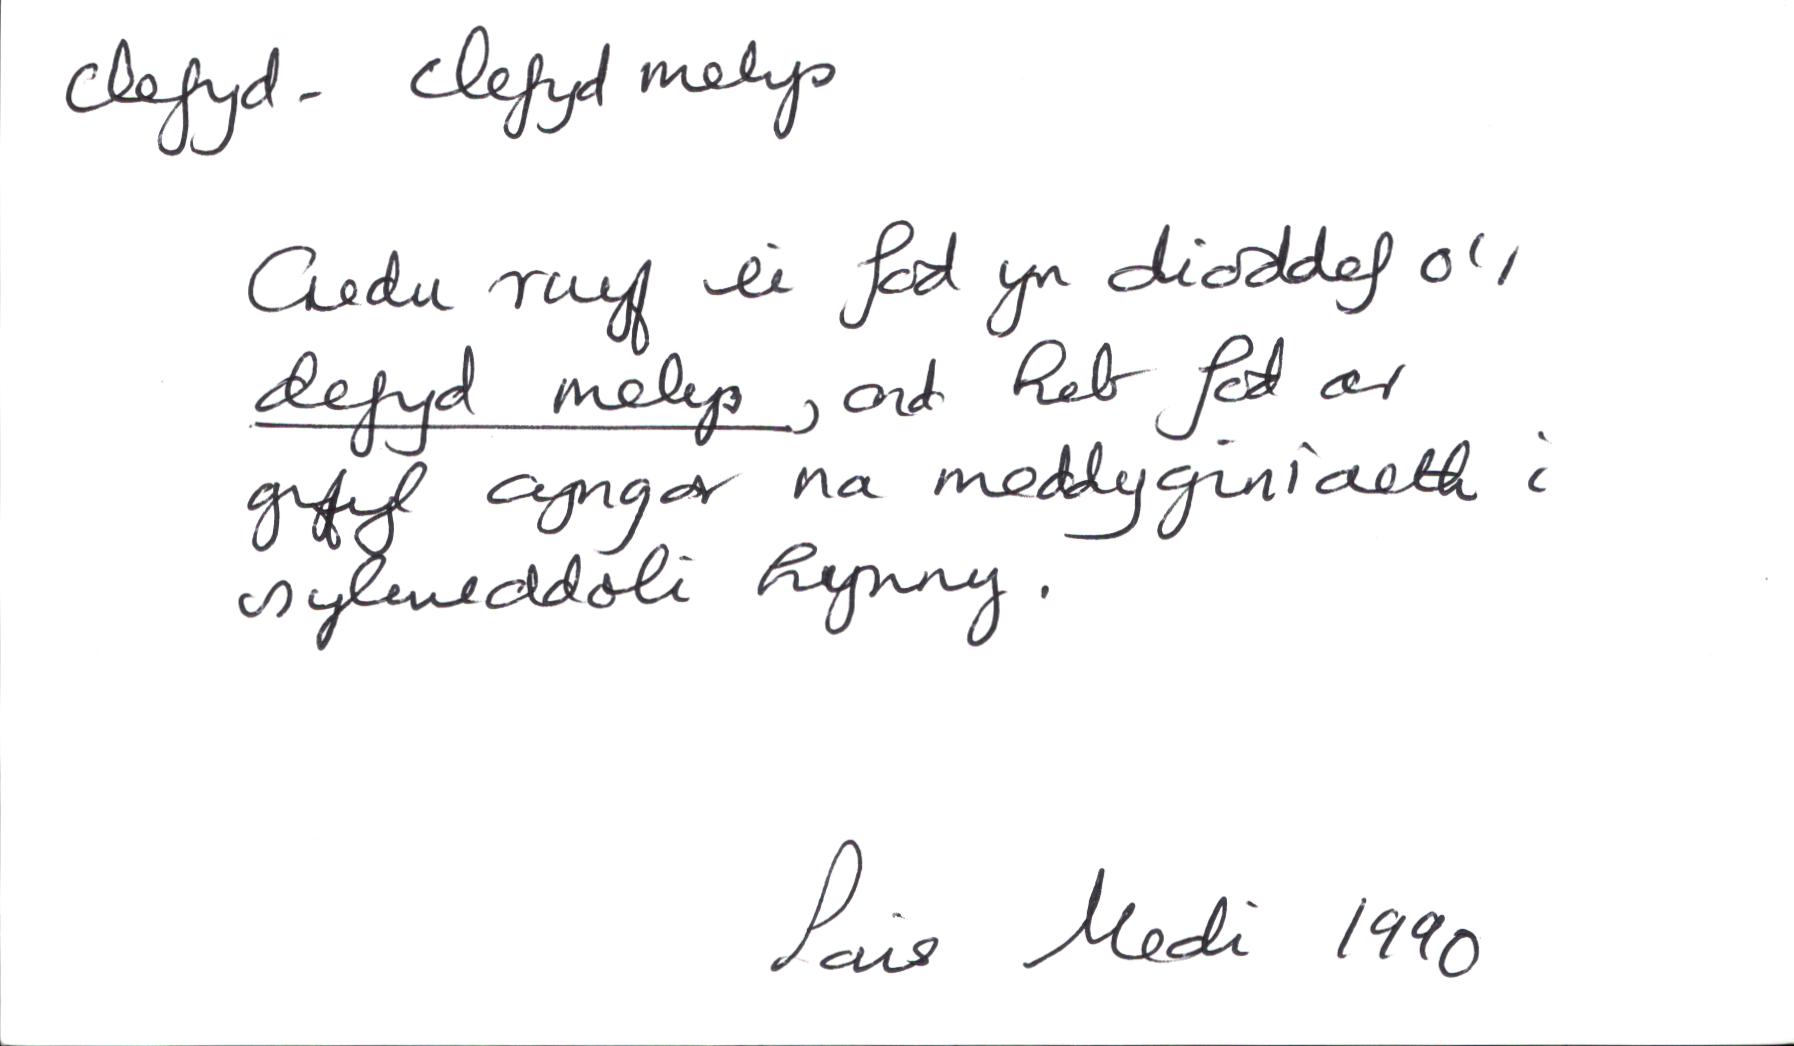 clefyd - clefyd melys
Credu rwyf ei fod yn dioddef o'r
clefyd melys, ond heb fod ar
gyfyl cyngor na meddyginiaeth i
sylweddoli hynny.
Pais Medi 1990